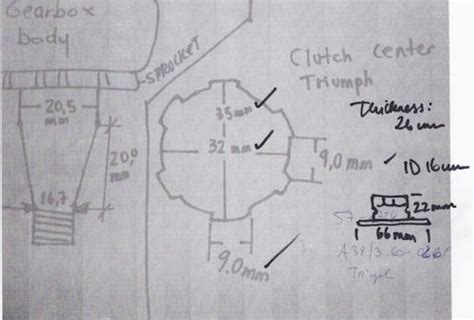 Gearbox
body
SPROCKET
20,5
mm
20,0
mm
16,7
35 mm
32 mm
9,0 mm
9.0 mm
Clutch Center
Triumph
Thickness:
26 mm
ID 16 mm
22 mm
57
66 mm